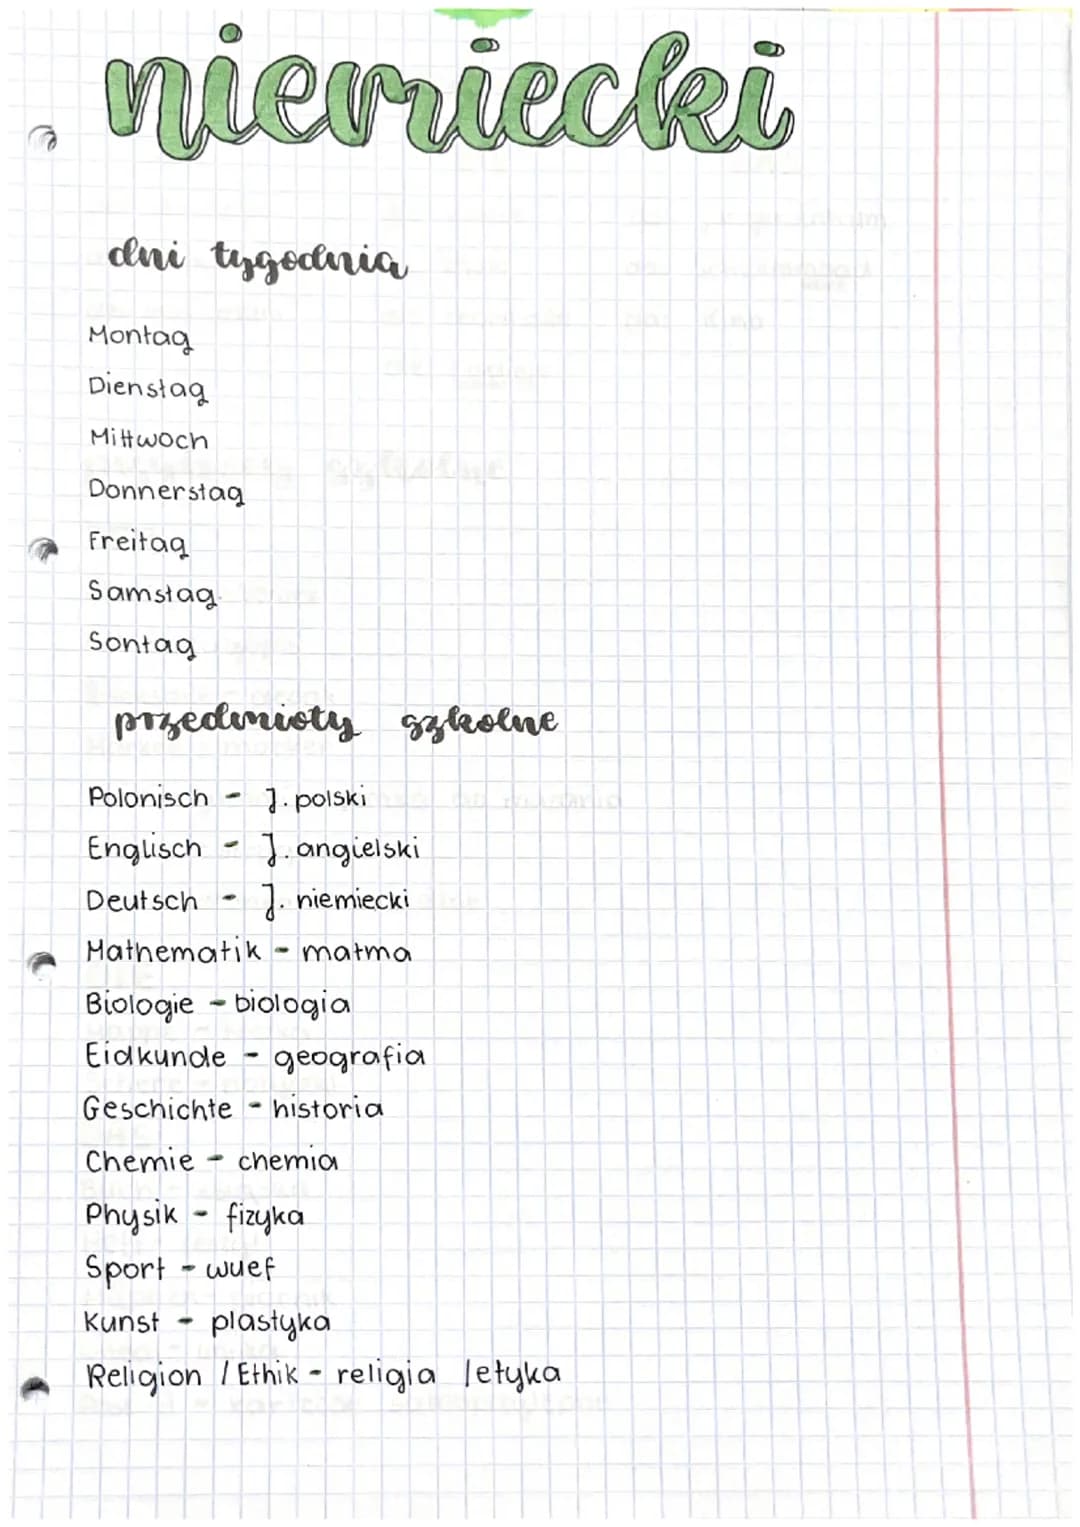 niemiecki
dni tygodnia
Montag
Dienstag
Mittwoch
Donnerstag
Freitag
Samstag
Sontag
przedmioty szkolne
Polonisch - J. polski
Englisch - J. angielski
Deutsch - J. niemiecki
Mathematik - matma
Biologie - biologia
Eidkunde - geografia
Geschichte - historia
Chemie - chemia
Physik - fizyka
Sport - wuef
Kunst - plastyka
Religion / Ethik - religia / etyka